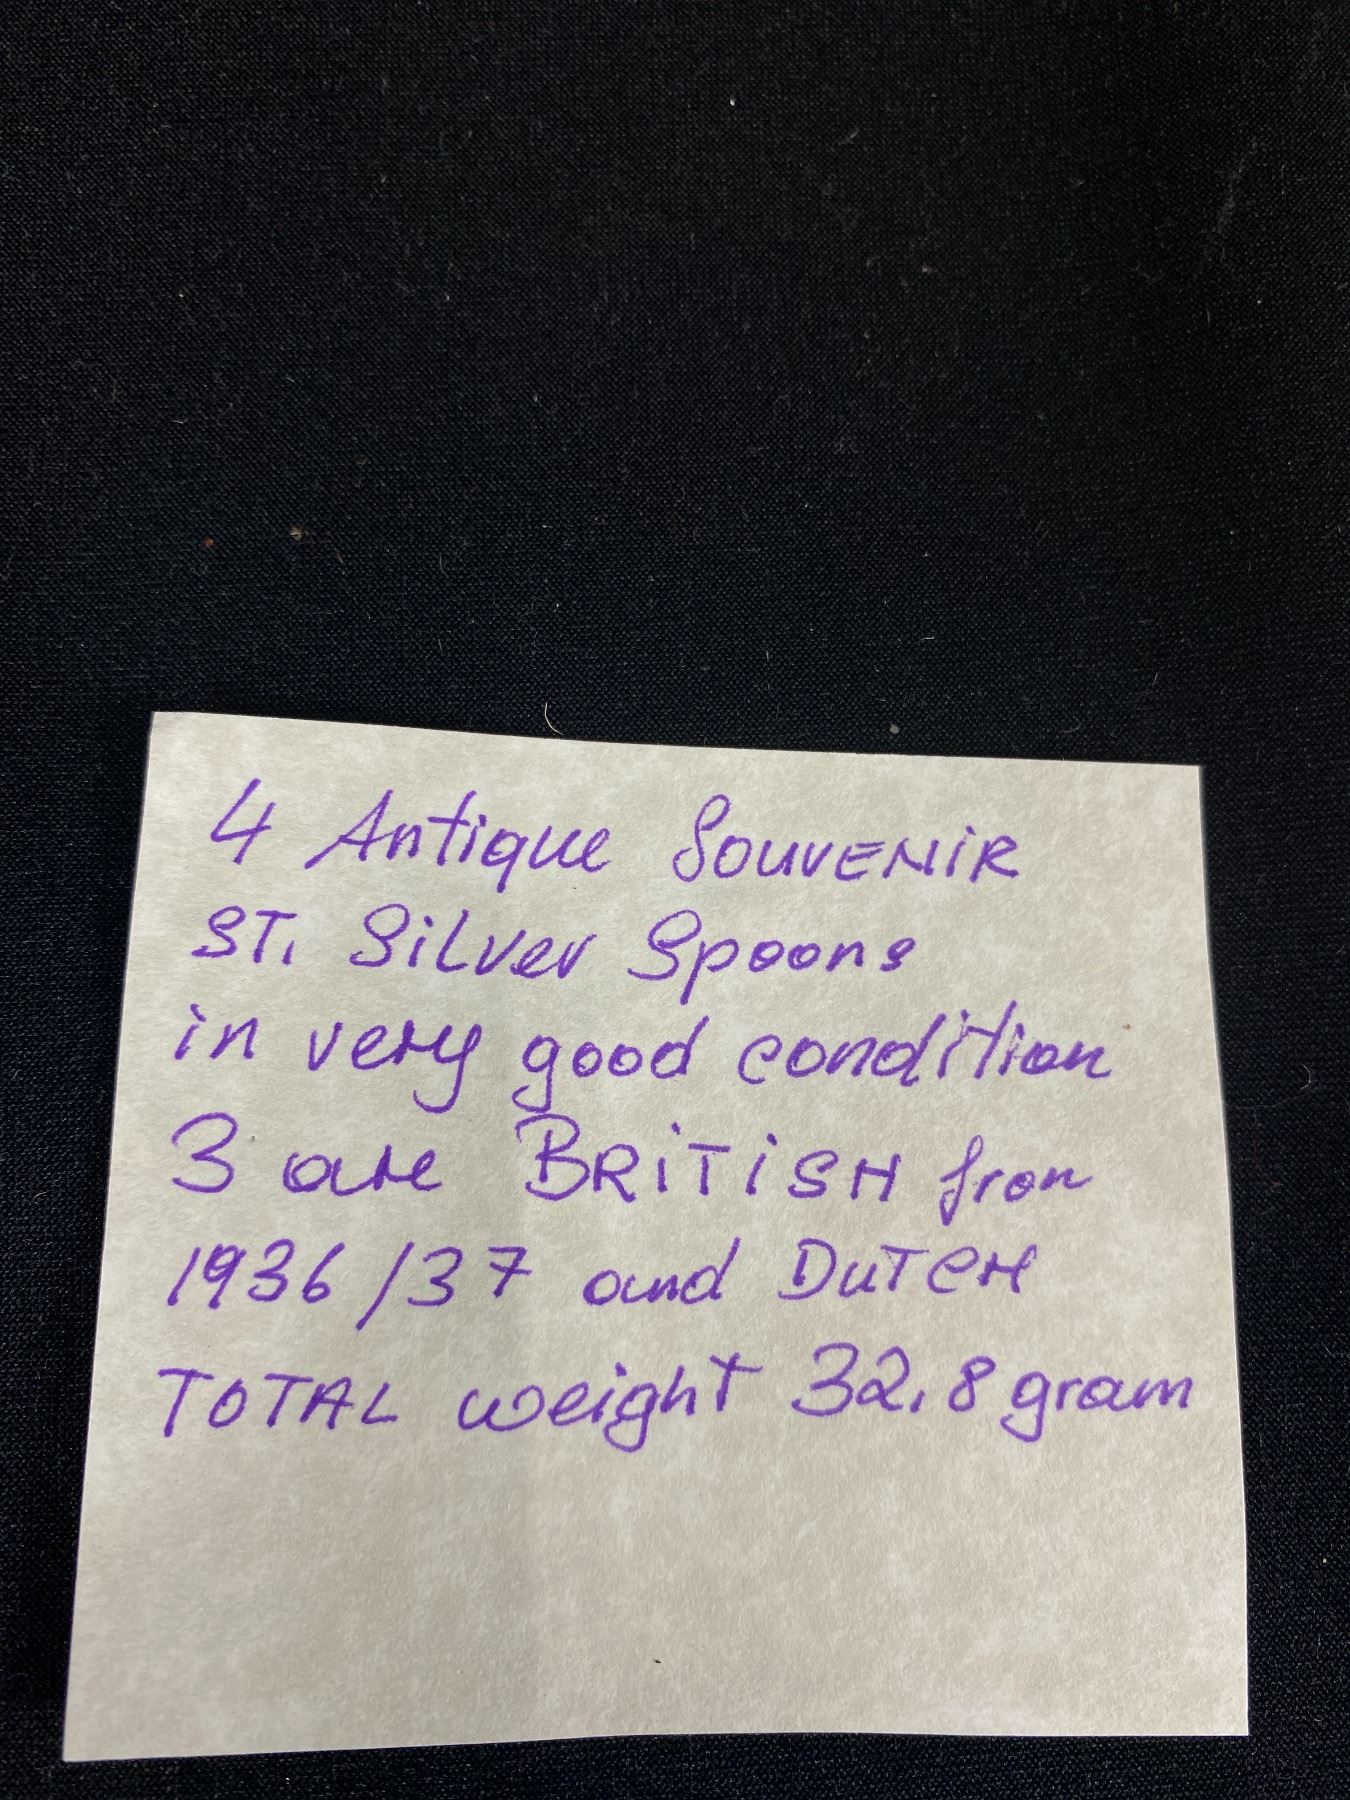 4 Antique SOUVENiR
ST. Silver Spoons
in very good condition
3 are BRiTiSH from
1936/37 and DuTCH
TOTAL weight 32.8 gram